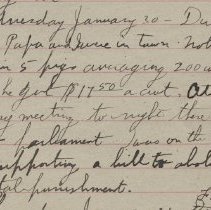 nesday January 20 - Du
Papa and were in town. not
5 pigs averaging 200
he got $17.50 a cwt. At
y meeting to-night there
parliament was on the
supporting a bill to abol
tal punishment.